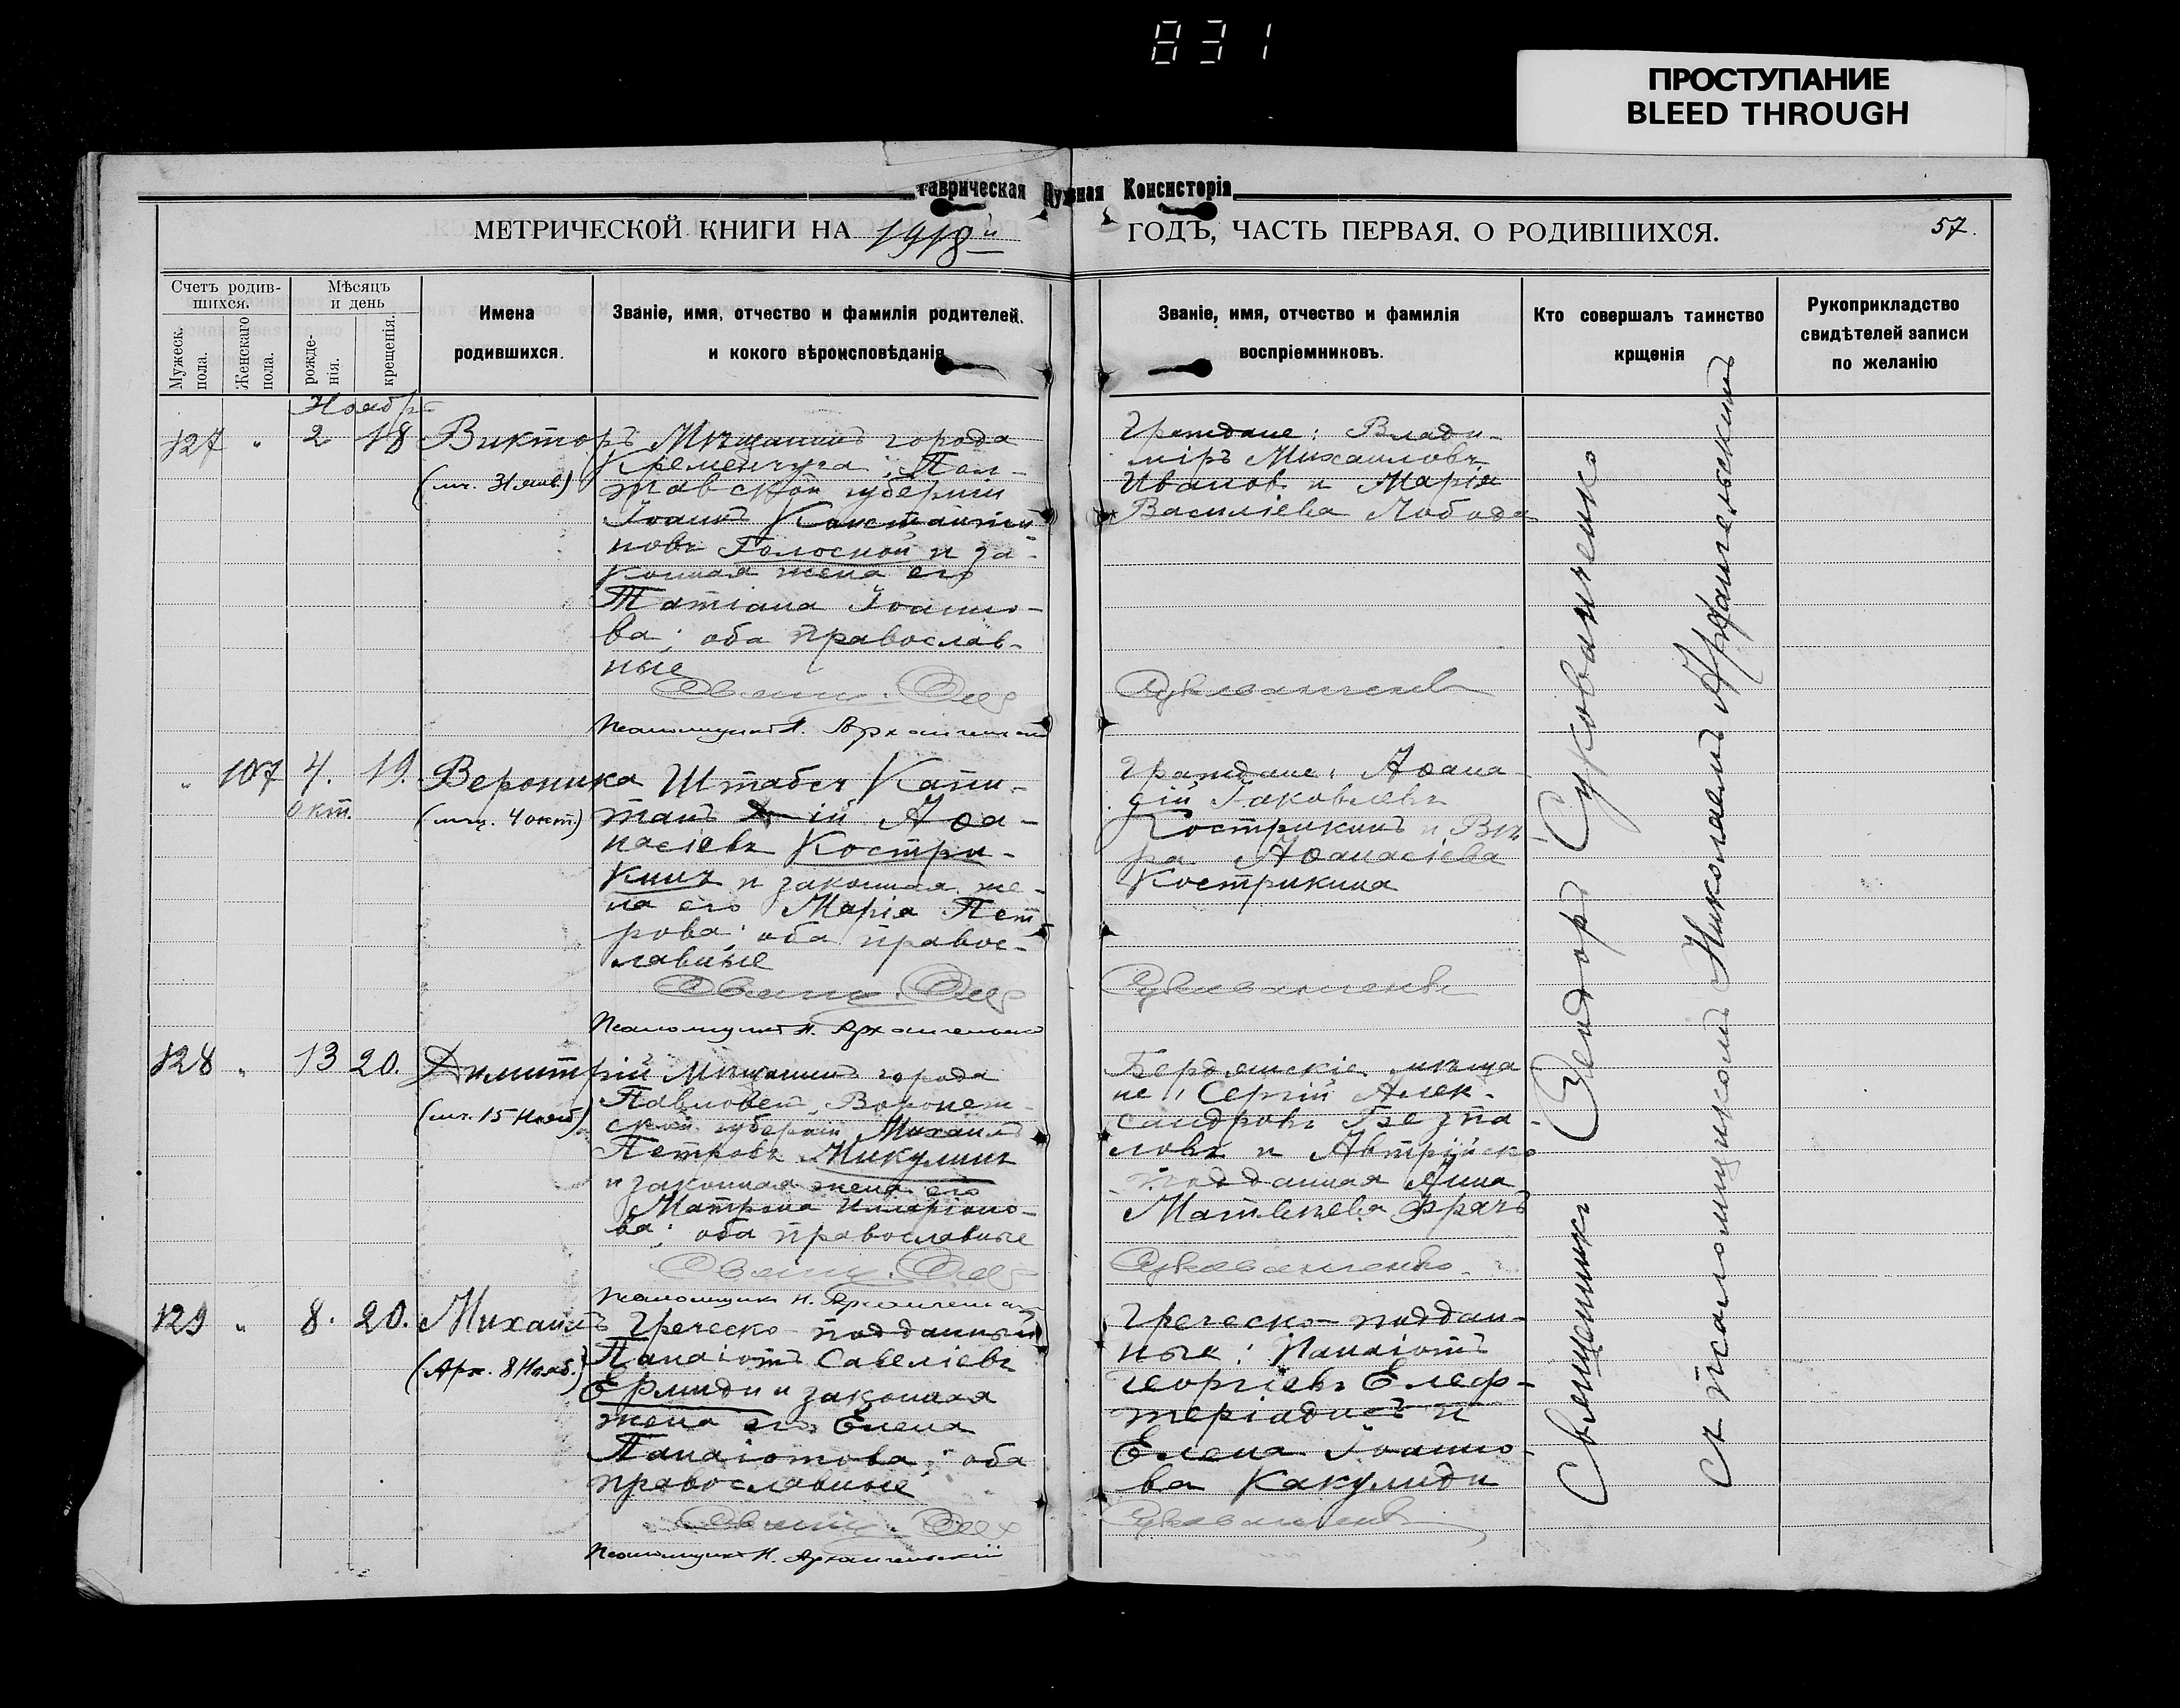 831
ПРОСТУПАНИЕ
BLEED THROUGH
Таврическая Духовная Консисторія
МЕТРИЧЕСКОЙ КНИГИ НА 1918й
ГОДЪ, ЧАСТЬ ПЕРВАЯ. О РОДИВШИХСЯ.
57.
Счетъ родив-
шихся.
Мужеск.
пола.
Женскаго
пола.
Мѣсяцъ
и день
рожде-
нія.
крещенія.
Имена
родившихся.
Званіе, имя, отчество и фамилія родителей.
и кокого вѣроисповѣданія
Званіе, имя, отчество и фамилія
воспріемниковъ.
Кто совершалъ таинство
крщенія
Рукоприкладство
свидѣтелей записи
по желанію
Ноябрь
127 " 2 18 Викторъ
(мч. 31 янв.)
Мѣщанинъ города
Кременчуга, Пол-
тавской губерніи
Іоаннъ Константи-
новъ Голосной и за-
конная жена его
Татіана Іоанно-
ва; оба православ-
ные
Священ. Ѳео
Псаломщикъ Н. Архангельск
Граждане: Влади-
міръ Михаиловъ
Ивановъ и Марія
Василіева Лобода
Сукованченко
" 107 4. 19. Вероника
Окт.
(мц. 4 окт.)
Штабсъ Капи-
танъ ій Аѳа-
насіевъ Костри-
кинъ и законная же-
на его Марія Пет
рова; оба правос-
лавные
Священ. Ѳео
Псаломщикъ Н. Архангельск
Граждане: Аѳана-
сій Іаковлевъ
Кострикинъ и Вѣ
ра Аѳанасіева
Кострикина
Сукованченко
128 " 13 20. Димитрій
(мч. 15 Нояб)
Мѣщанинъ города
Павловска, Воронеж-
ской губерніи Михаилъ
Петровъ Микулинъ
и законная жена его
Матрона Иларіоно-
ва; оба православные
Священ. Ѳео
Псаломщикъ Н. Архангельск
Бердянскіе мѣща
не: Сергій Алек-
сандровъ Безпа-
ловъ и Австрійско
подданная Анна
Матвѣева Фрачъ
Сукованченко
129 " 8. 20. Михаилъ
(Арх. 8 Нояб.)
Греческо-подданный
Панаіотъ Савеліевъ
Ермиди и законная
жена его Елена
Панаіотова; оба
православные
Священ. Ѳео
Псаломщикъ Н. Архангельскій
Греческо-поддан-
ные: Панаіотъ
Георгіевъ Елеф-
теріадисъ и
Елена Іоанно-
ва Какулиди
Сукованченко
Священникъ Ѳеодоръ Сукованченко
съ псаломщикомъ Николаемъ Архангельскимъ